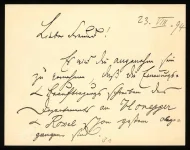 23. VIII. 94
Lieber Freund!
Es wird Sie angenehm sein
zu vernehmen, daß die
des
Departements an Honegger
& Rosel schon gestern abge-
gangen sind.